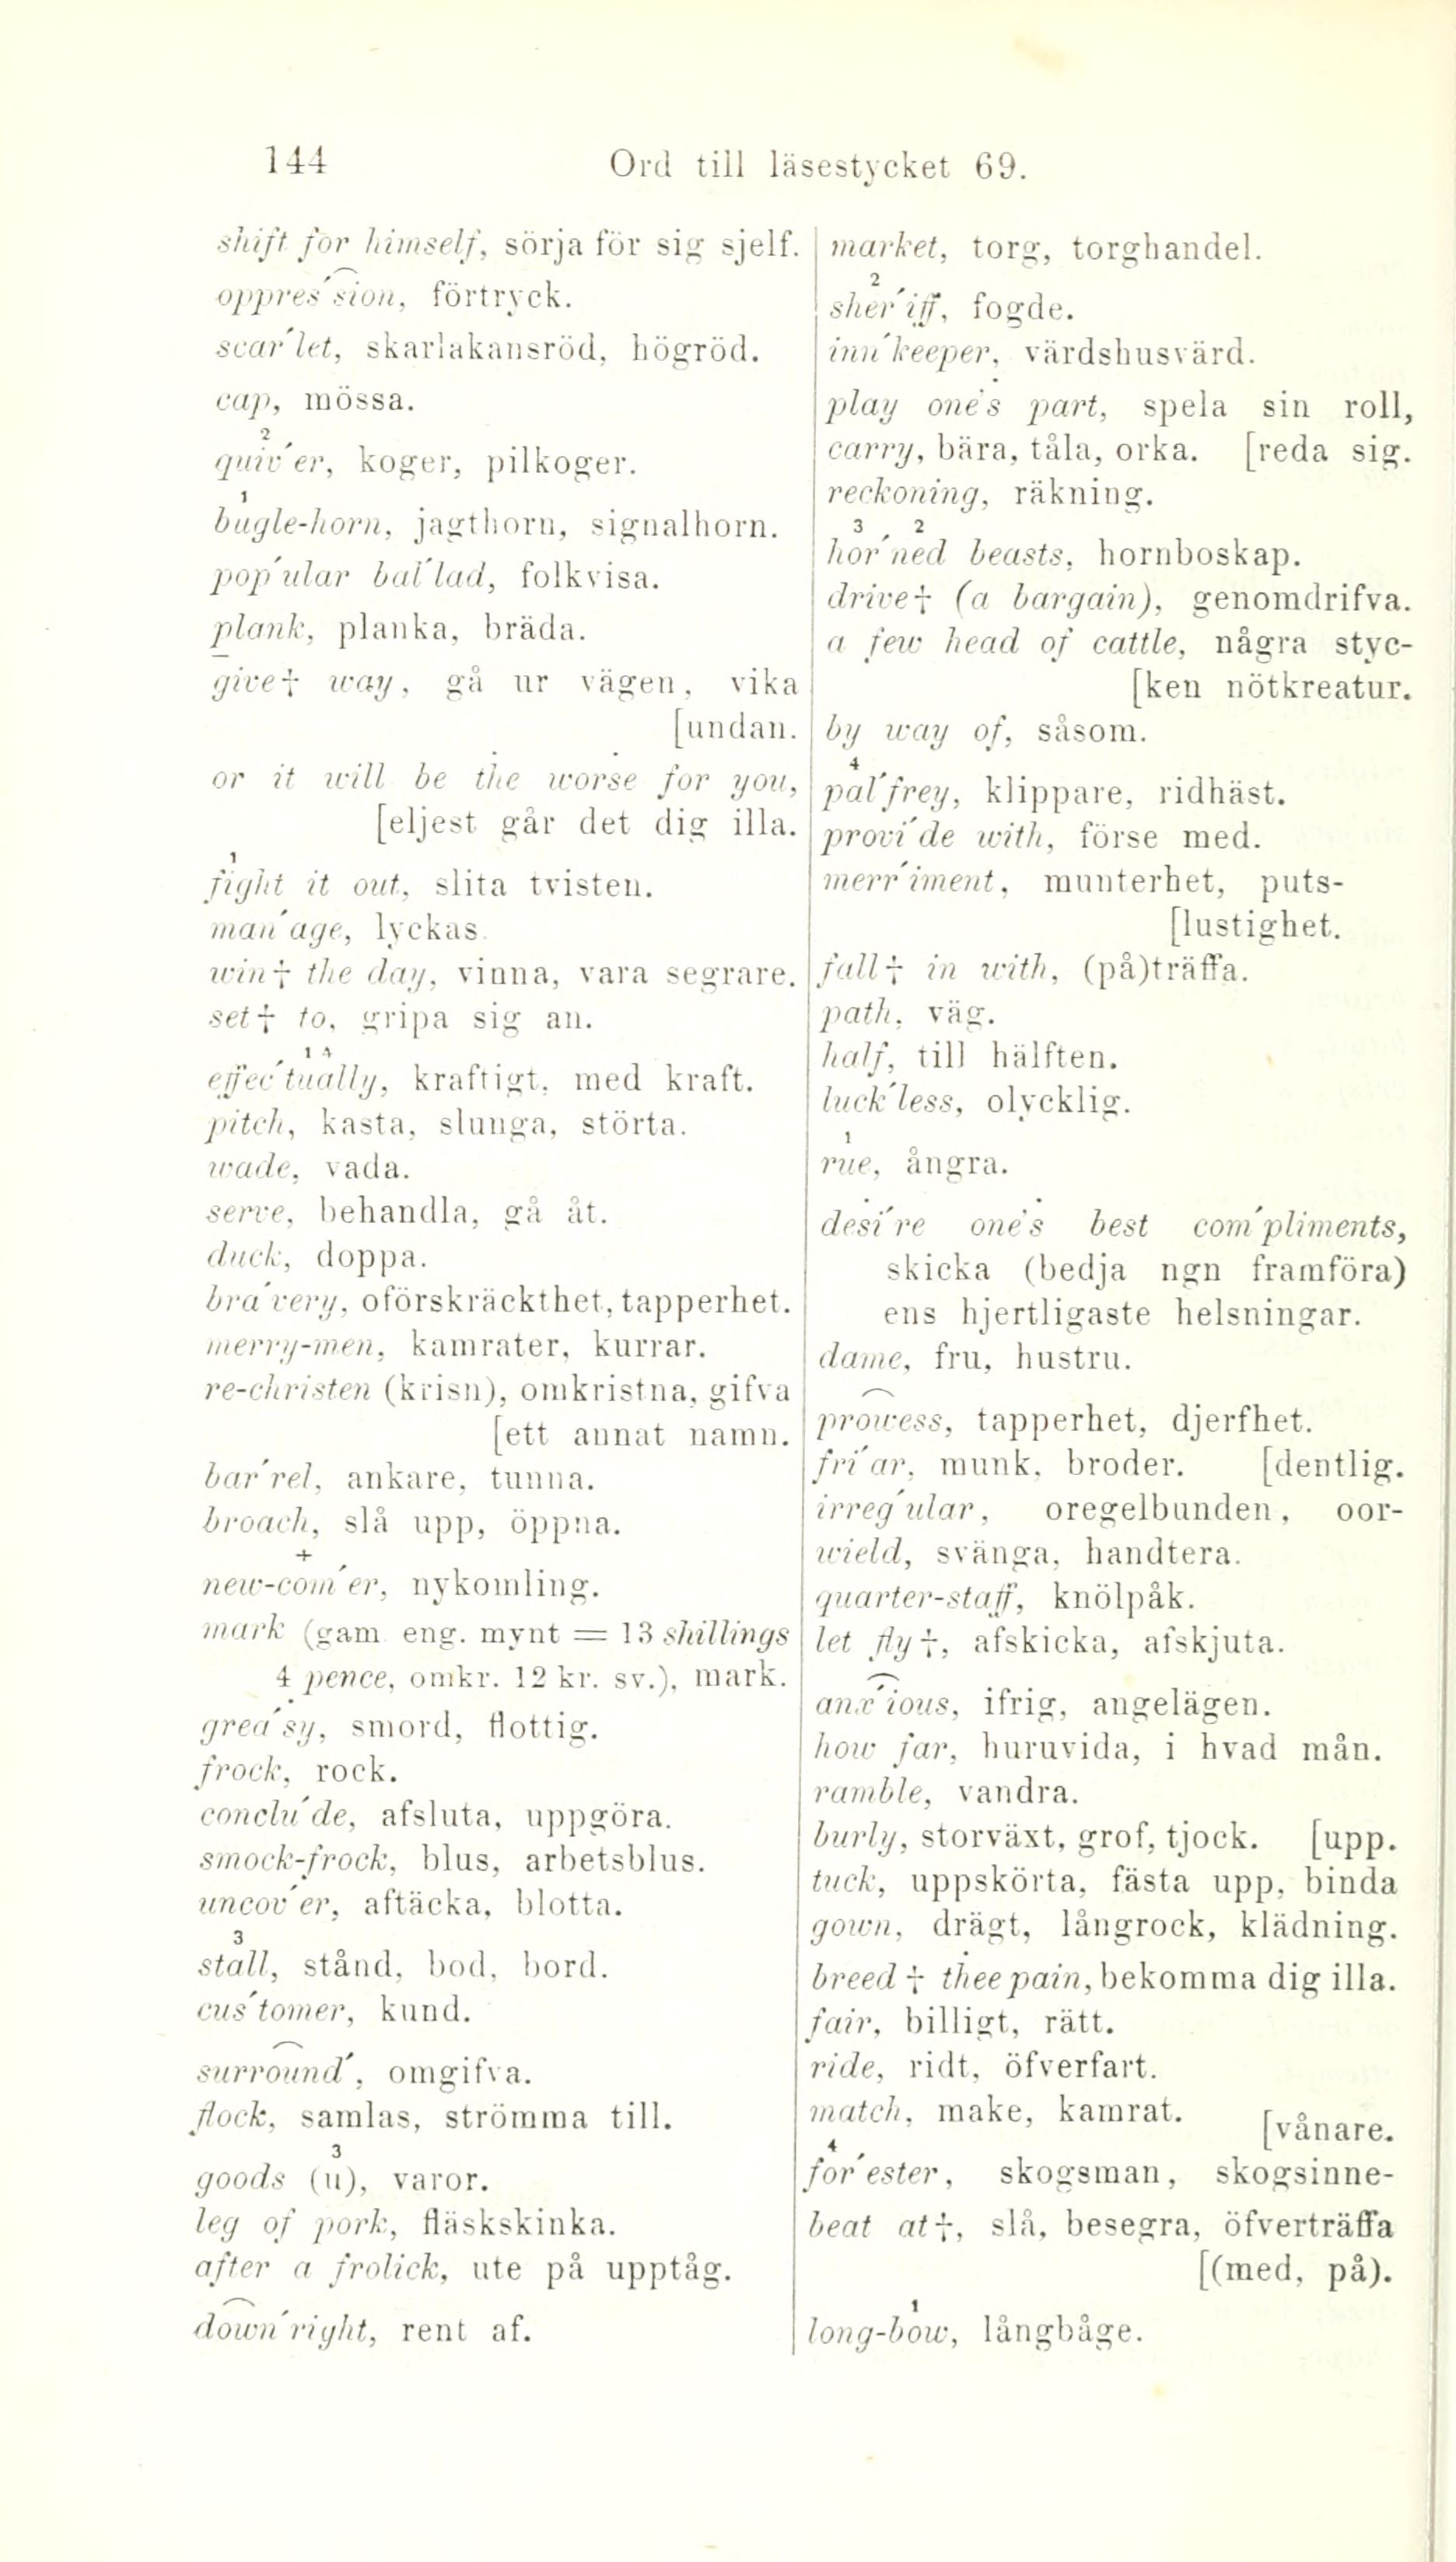 144
Ord till läsestycket 69.
shift for himself, sörja för sig sjelf.
oppres´sion, förtryck.
scar´let, skarlakansröd, högröd.
cap, mössa.
2
quiv´er, koger, pilkoger.
1
bugle-horn, jagthorn, signalhorn.
pop´ular bal´lad, folkvisa.
plank, planka, bräda.
give† way, gå ur vägen, vika
[undan.
or it will be the worse for you,
[eljest går det dig illa.
1
fight it out, slita tvisten.
man´age, lyckas.
win† the day, vinna, vara segrare.
set† to, gripa sig an.
1 4
effec´tually, kraftigt, med kraft.
pitch, kasta, slunga, störta.
wade, vada.
serve, behandla, gå åt.
duck, doppa.
bra´very, oförskräckthet, tapperhet.
merry-men, kamrater, kurrar.
re-christen (krisn), omkristna, gifva
[ett annat namn.
bar´rel, ankare, tunna.
broach, slå upp, öppna.
+
new-com´er, nykomling.
mark (gam eng. mynt = 13 shillings
4 pence, omkr. 12 kr. sv.), mark.
grea´sy, smord, flottig.
frock, rock.
conclu´de, afsluta, uppgöra.
smock-frock, blus, arbetsblus.
uncov´er, aftäcka, blotta.
3
stall, stånd, bod, bord.
cus´tomer, kund.
surround´, omgifva.
flock, samlas, strömma till.
3
goods (u), varor.
leg of pork, fläskskinka.
after a frolick, ute på upptåg.
down´right, rent af.
market, torg, torghandel.
2
sher´iff, fogde.
inn´keeper, värdshusvärd.
play one's part, spela sin roll,
carry, bära, tåla, orka. [reda sig.
reckoning, räkning.
3 2
hor´ned beasts, hornboskap.
drive† (a bargain), genomdrifva.
a few head of cattle, några styc-
[ken nötkreatur.
by way of, såsom.
4
pal´frey, klippare, ridhäst.
provi´de with, förse med.
merr´iment, munterhet, puts-
[lustighet.
fall† in with, (på)träffa.
path, väg.
half, till hälften.
luck´less, olycklig.
1
rue, ångra.
desi´re one's best com´pliments,
skicka (bedja ngn framföra)
ens hjertligaste helsningar.
dame, fru, hustru.
prowess, tapperhet, djerfhet.
fri´ar, munk, broder. [dentlig.
irreg´ular, oregelbunden, oor-
wield, svänga, handtera.
quarter-staff, knölpåk.
let fly†, afskicka, afskjuta.
anx´ious, ifrig, angelägen.
how far, huruvida, i hvad mån.
ramble, vandra.
burly, storväxt, grof, tjock. [upp.
tuck, uppskörta, fästa upp, binda
gown, drägt, långrock, klädning.
breed† thee pain, bekomma dig illa.
fair, billigt, rätt.
ride, ridt, öfverfart.
match, make, kamrat. [vånare.
4
for´ester, skogsman, skogsinne-
beat at†, slå, besegra, öfverträffa
[(med, på).
1
long-bow, långbåge.